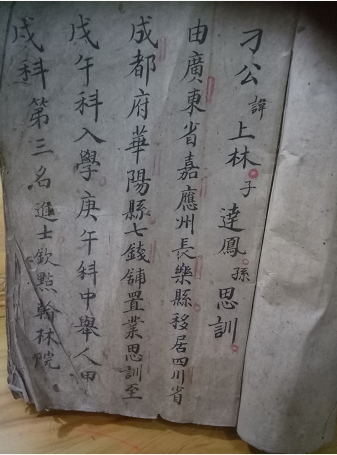 刁公諱上林子達鳳孫思訓
由廣東省嘉應州長樂縣移居四川省
成都府華陽縣七錢舖置業思訓至
戊午科入學庚午科中舉人甲
戌科第三名進士欽點翰林院